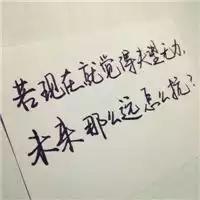 若现在就觉得失望无力，
未来那么远怎么抗？